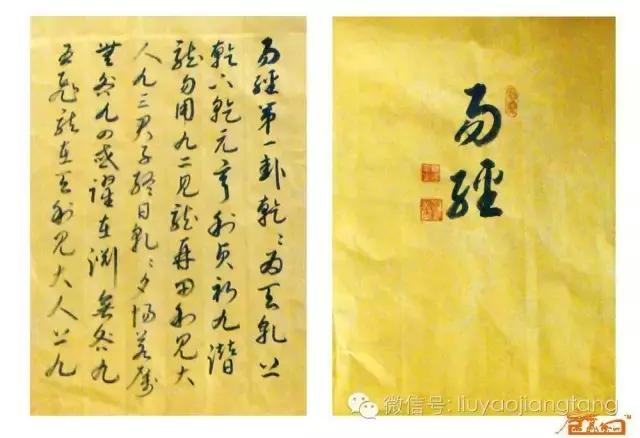 易經第一卦乾〻為天乾上
乾下乾元亨利貞初九潛
龍勿用九二見龍再田利見大
人九三君子終日乾〻夕惕若厲
無咎九四或躍在淵無咎九
五飛龍在天利見大人上九
易經
微信号: liuyaojiangtang